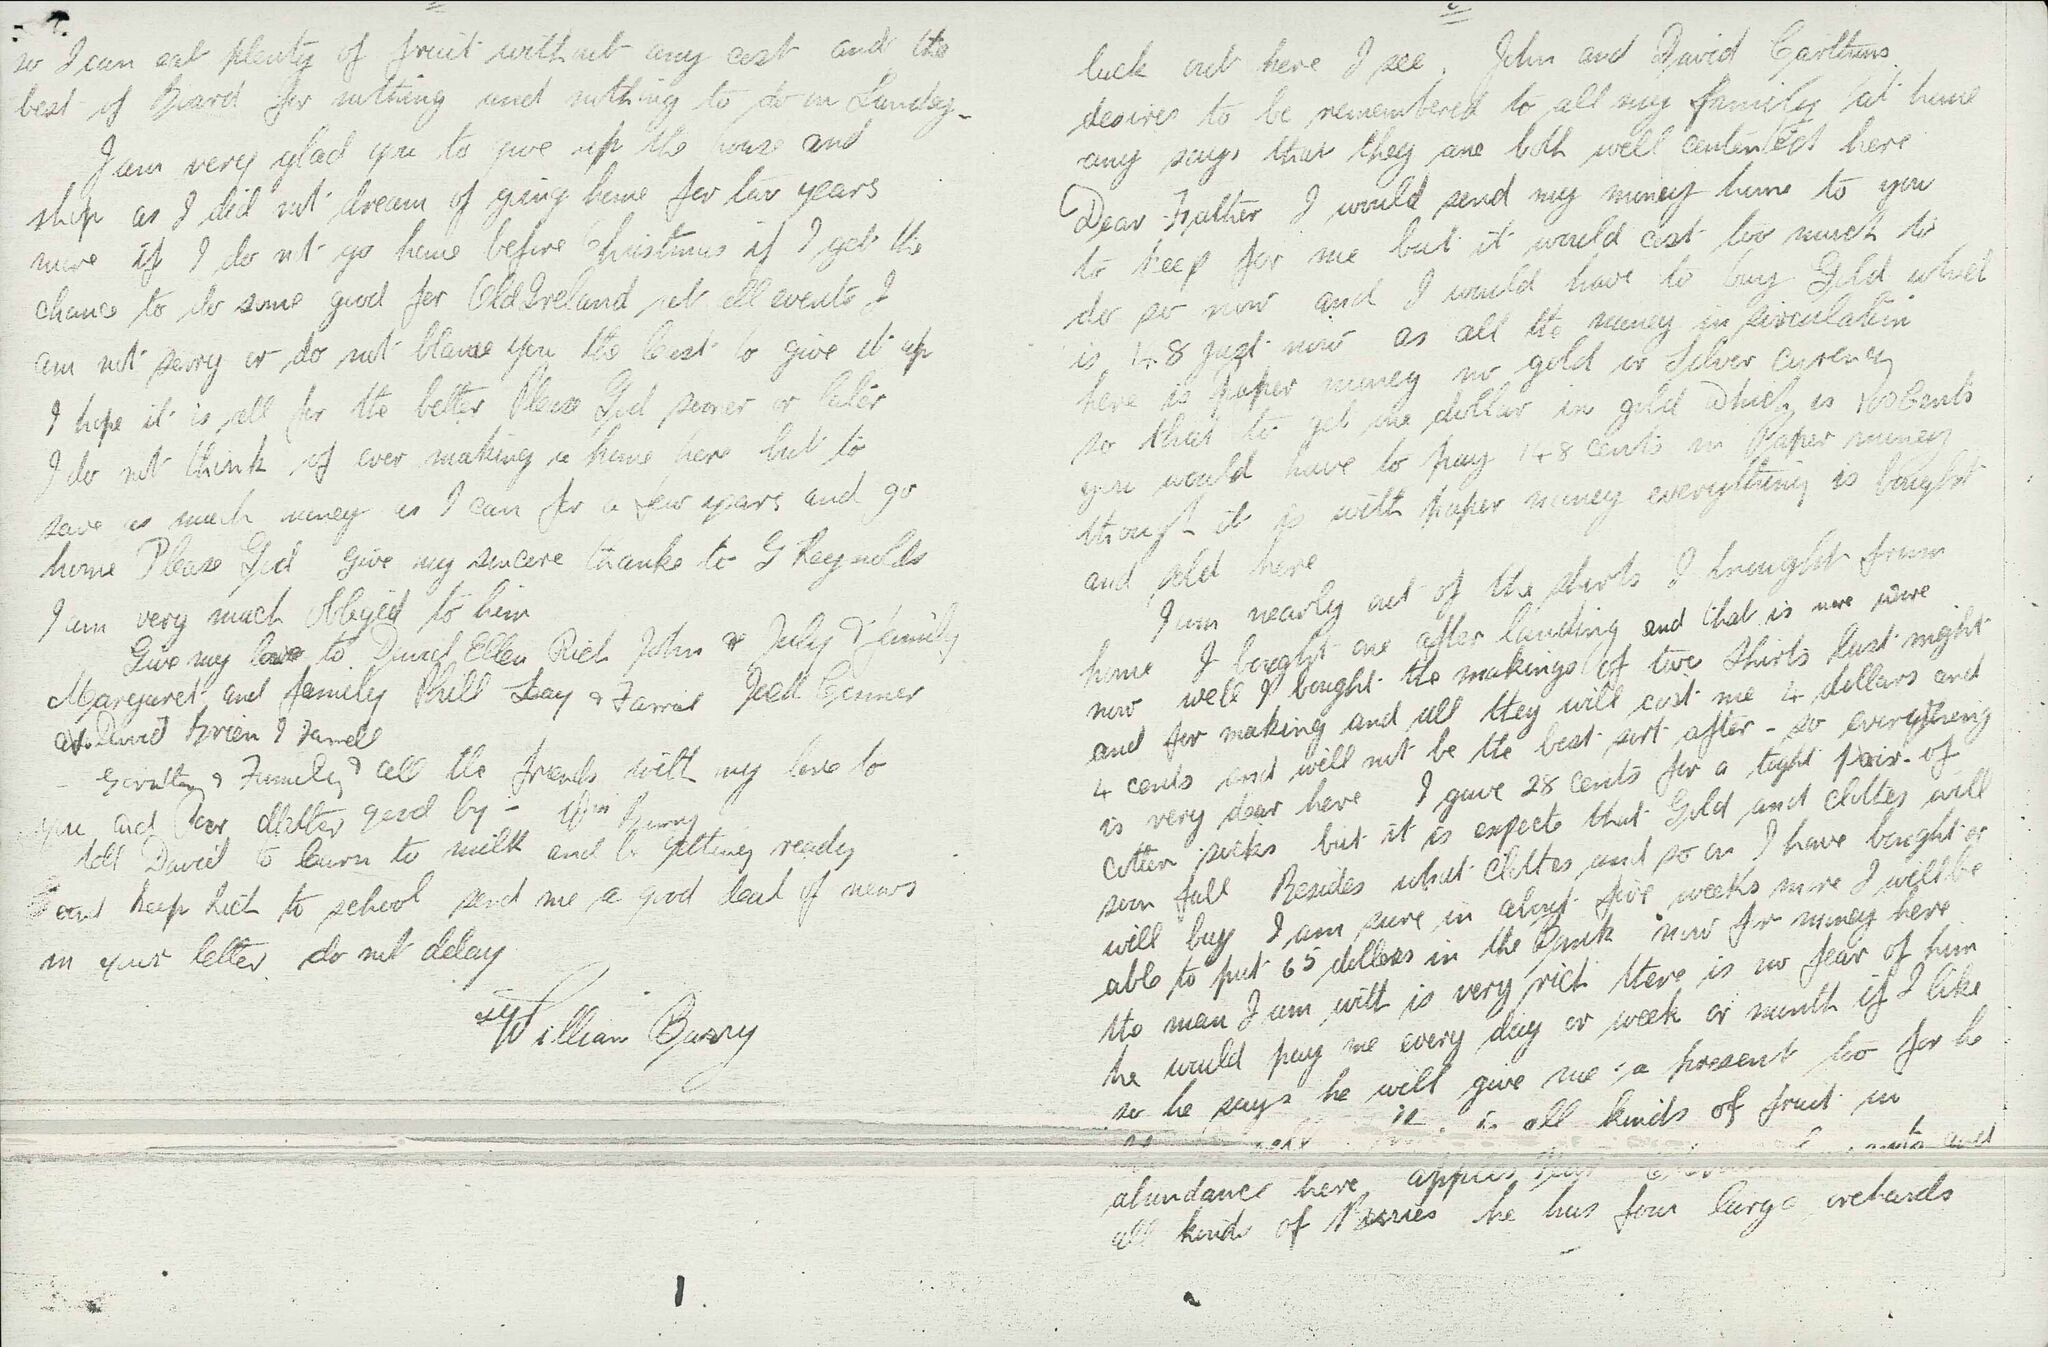 so I can eat plenty of fruit without any cost and the
best of Board for nothing and nothing to do on Sunday -
I am very glad you to give up the house and
shop as I did not dream of going home for two years
more if I do not go home before Christmas if I get the
chance to do some good for Old Ireland at all events I
am not sorry or do not blame you the least to give it up
I hope it is all for the better Please God sooner or later
I do not think of ever making a home here but to
save as much money as I can for a few years and go
home Please God give my sincere thanks to G Reynolds
I am very much obliged to him
Give my love to David Ellen Rich John & July & family
Margaret and family Phill & Jack Conner
David Brien & Farrell
& Family & all the friends with my love to
you and Poor Mother good by - Wm Barry
tell David to learn to milk and be getting ready
and keep Rich to school send me a good deal of news
in your letter do not delay
William Barry
luck out here I see. John and David
desires to be remembered to all my family at home
any says that they are both well contented here
Dear Father I would send my money home to you
to keep for me but it would cost too much to
do so now and I would have to buy Gold which
is 148 just now as all the money in sirculation
here is paper money no gold or Silver curency
so that to get one dollar in gold which is 100 Cents
you would have to pay 148 cents in Paper money
though it is with paper money everything is bought
and sold here
I am nearly out of the shirts I brought from
home I bought one after landing and that is more wore
now well I bought the makings of two Shirts last night
and for making and all they will cost me 4 dollars and
4 cents and will not be the best sort after - so everything
is very dear here I gave 28 cents for a tight pair of
cotten socks but it is expects that Gold and clothes will
soon fall Besides what clothes and so on I have bought or
will buy I am sure in about five weeks more I will be
able to put 65 dollers in the Bank now for money here
the man I am with is very rich there is no fear of him
he would pay me every day or week or month if I like
so he says he will give me a present too for he
all kinds of fruit in
abundance here apples
all kinds of Berries he has four large orchards